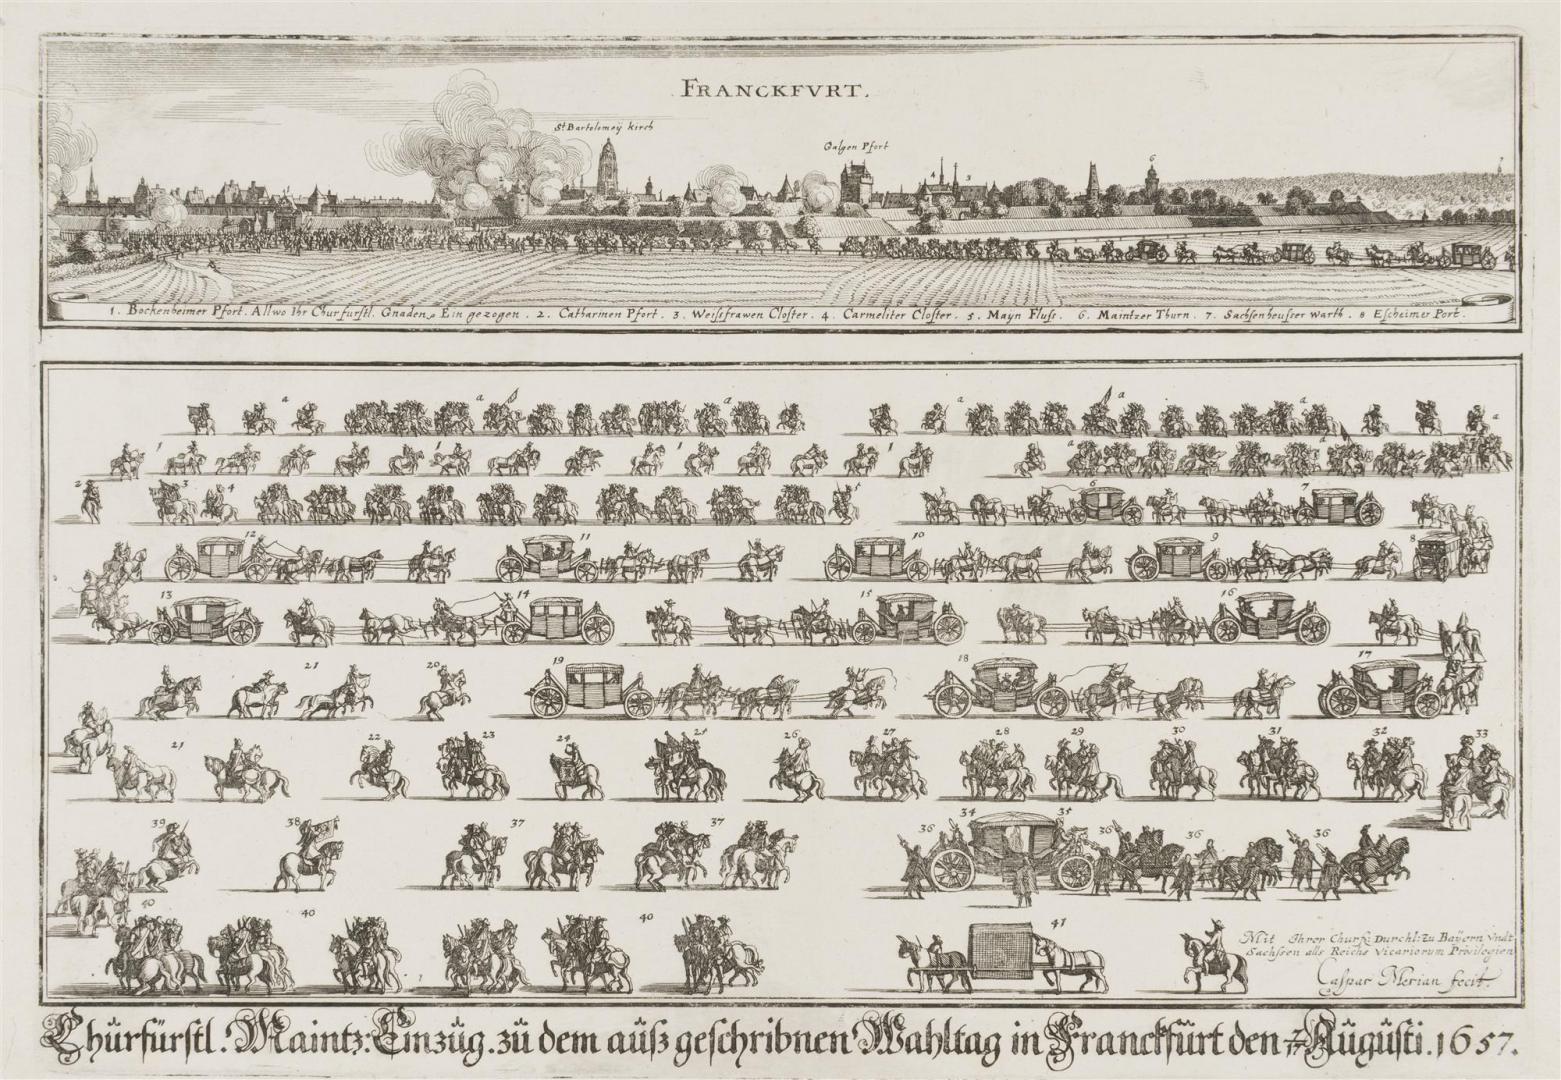 FRANCKFVRT.
St Bartolomeÿ kirch
Galgen Pfort
6
7
4
3
1
1. Bockenheimer Pfort. Allwo Ihr Churfurstl. Gnaden, Ein gezogen. 2. Catharinen Pfort. 3. Weissfrawen Closter. 4. Carmeliter Closter. 5. Maÿn Fluss. 6. Maintzer Thurn. 7. Sachsenheusser warth. 8 Escheimer Port.
a a a a a a a
1 1 1 1 a a
2 3 4 5 6 7
12 11 10 9 8
13 14 15 16
21 20 19 18 17
21 22 23 24 25 26 27 28 29 30 31 32 33
39 38 37 37 36 34 35 36 36 36
40 40 40 41
Mit Ihrer Churf: Durchl: zu Baÿern vndt
Sachssen alls Reichs Vicariorum Privilegien
Caspar Merian fecit.
Chürfürstl. Maintz: Einzüg. zü dem aüsz geschribnen Wahltag in Franckfürt den 7/17 Aügüsti. 1657.